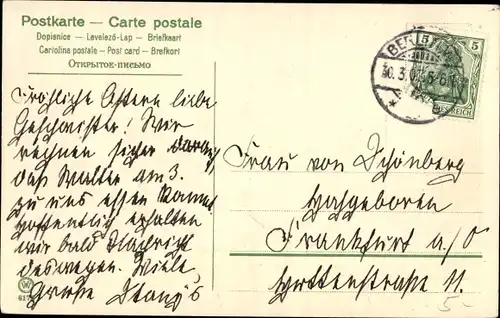 Postkarte — Carte postale
Dopisnice — Levelező-Lap — Briefkaart
Cartolina postale — Post card — Brefkort
Открытое-письмо
5 5
BERLIN
30.3.0 5-6
REICH
Fröhliche Ostern liebe
Geschwister! Wir
rechnen sicher darauf,
daß Walter am 3.
zu uns essen kommt
hoffentlich erhalten
wir bald Nachricht
deswegen. Viele
Grüße
Frau von Schönberg
Hochgeboren
Frankfurt a/O
Huttenstraße 11.
5.-